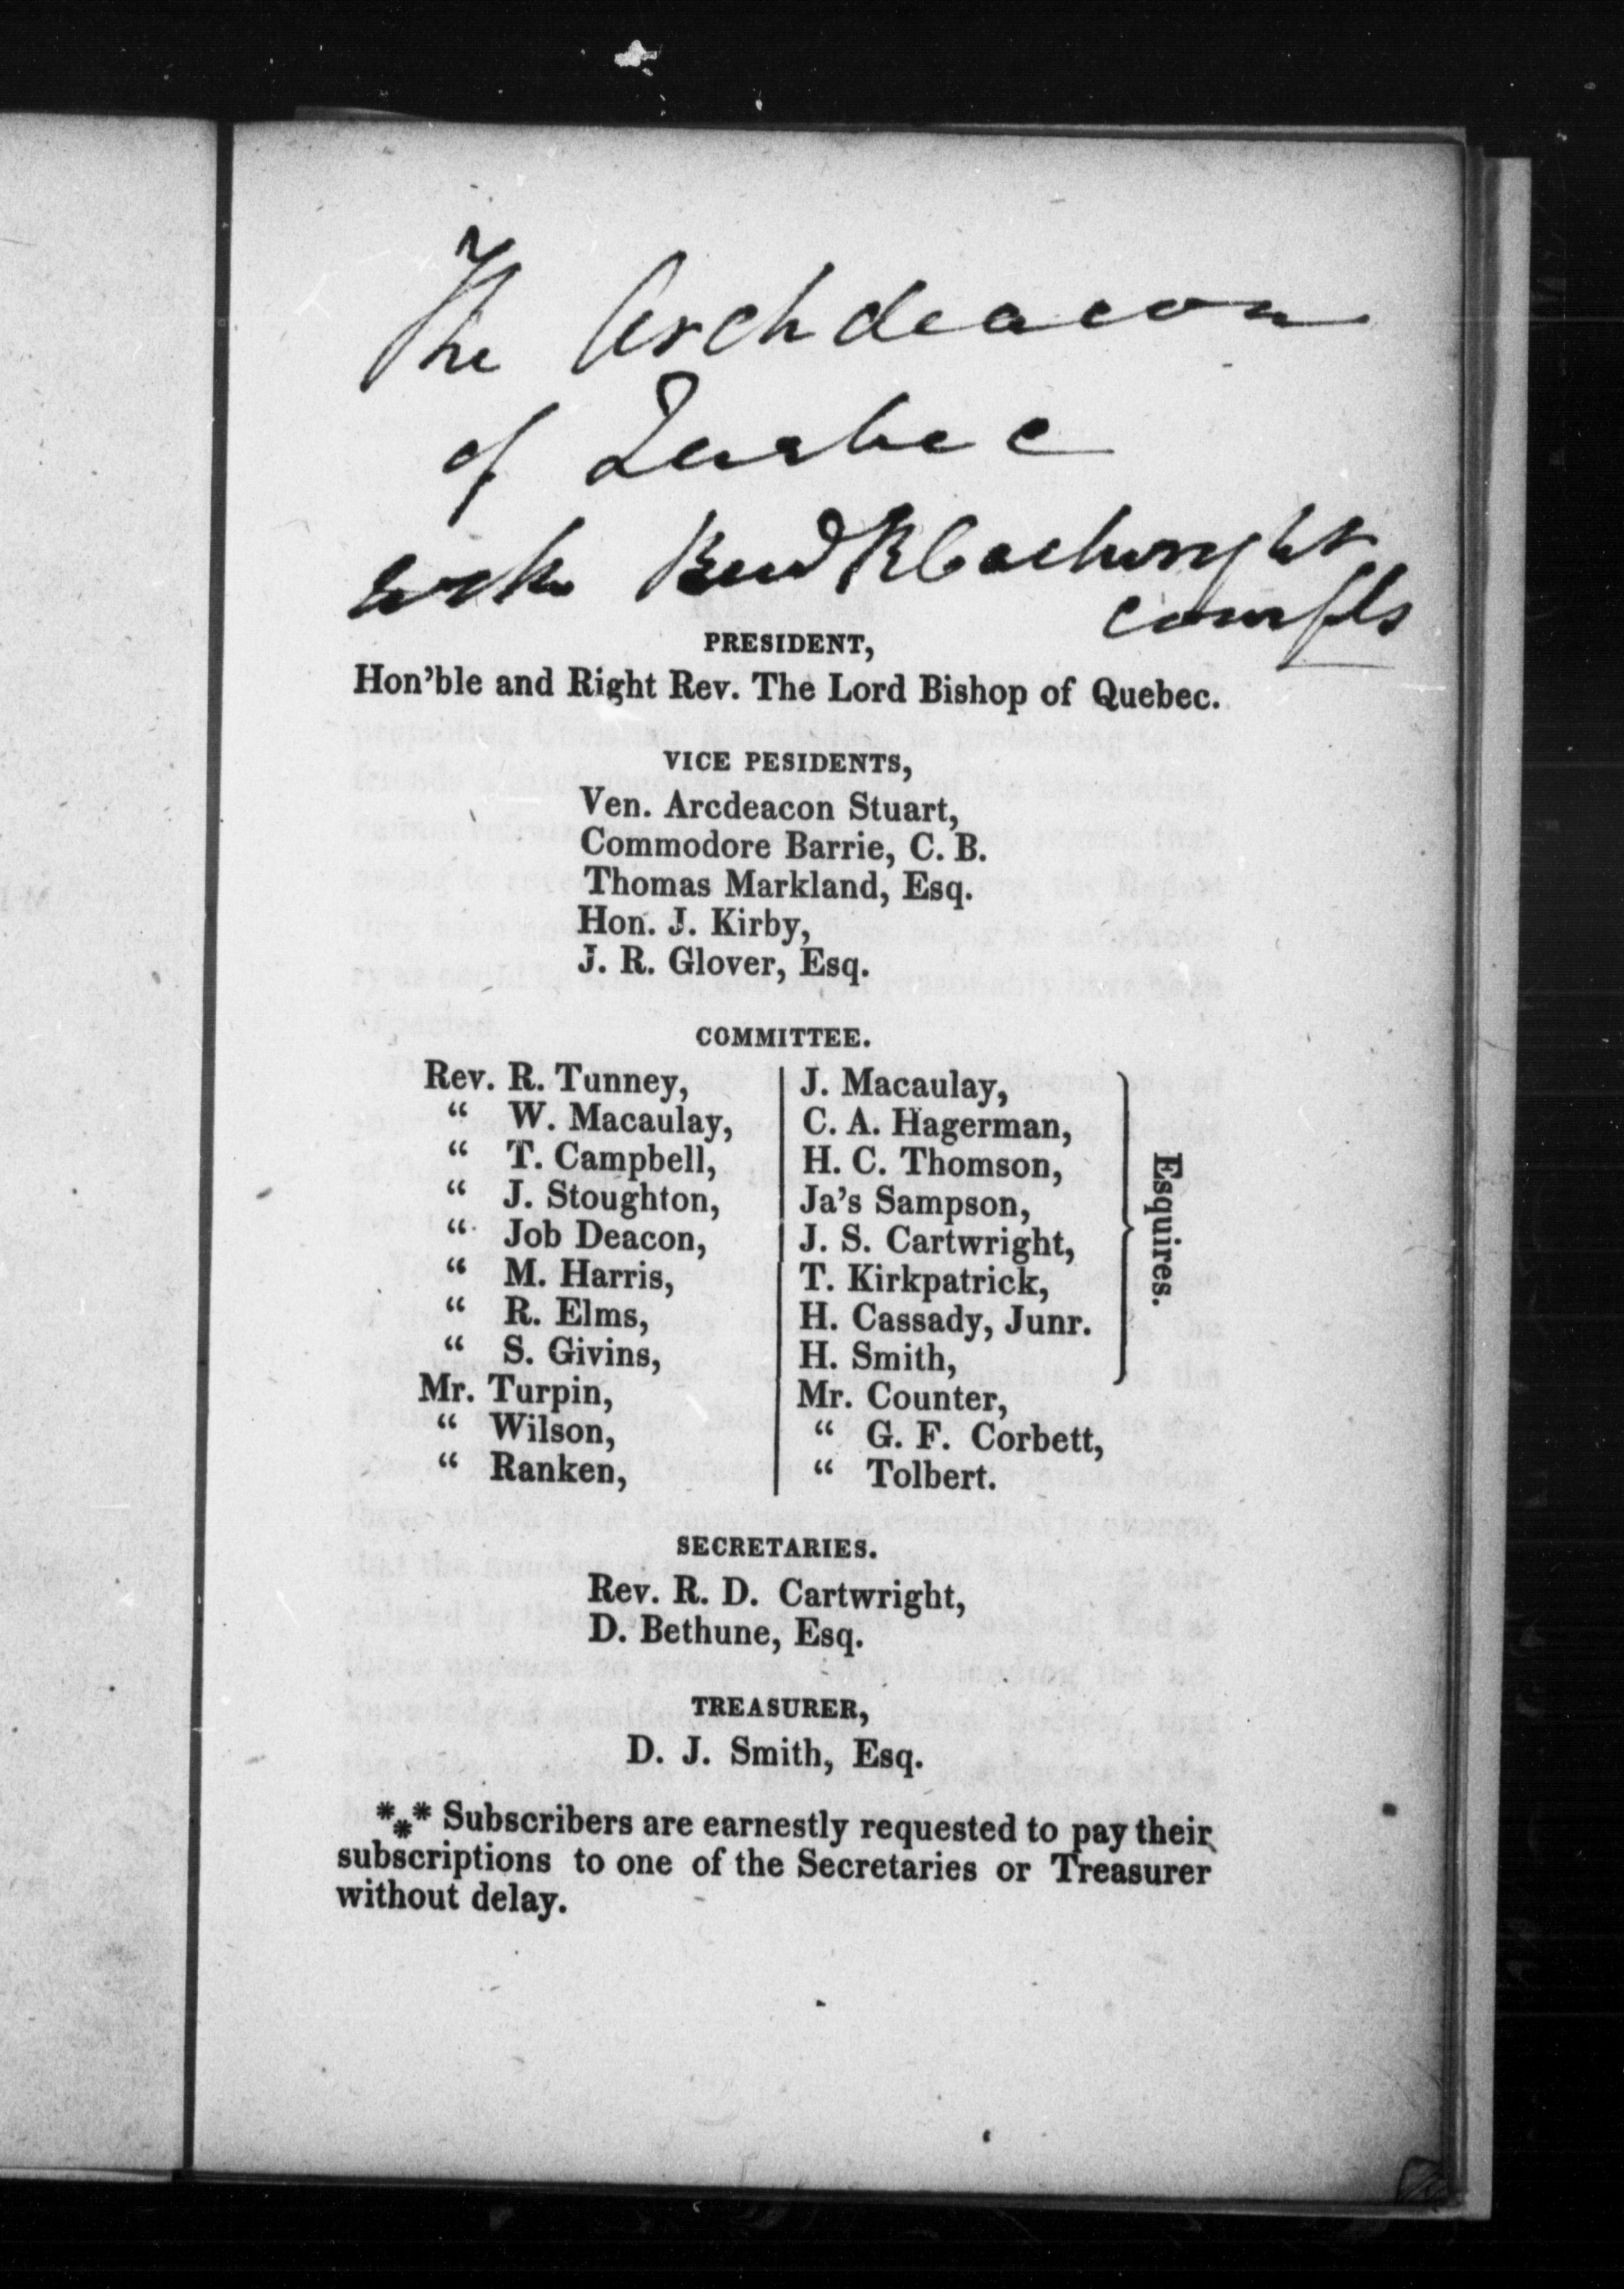 The Archdeacon
of Quebec
with Revd R Cartwright
compls
PRESIDENT,
Hon'ble and Right Rev. The Lord Bishop of Quebec.
VICE PESIDENTS,
Ven. Arcdeacon Stuart,
Commodore Barrie, C. B.
Thomas Markland, Esq.
Hon. J. Kirby,
J. R. Glover, Esq.
COMMITTEE.
Rev. R. Tunney,
“ W. Macaulay,
“ T. Campbell,
“ J. Stoughton,
“ Job Deacon,
“ M. Harris,
“ R. Elms,
“ S. Givins,
Mr. Turpin,
“ Wilson,
“ Ranken,
J. Macaulay,
C. A. Hagerman,
H. C. Thomson,
Ja's Sampson,
J. S. Cartwright,
T. Kirkpatrick,
H. Cassady, Junr.
H. Smith,
Esquires.
Mr. Counter,
“ G. F. Corbett,
“ Tolbert.
SECRETARIES.
Rev. R. D. Cartwright,
D. Bethune, Esq.
TREASURER,
D. J. Smith, Esq.
*** Subscribers are earnestly requested to pay their
subscriptions to one of the Secretaries or Treasurer
without delay.